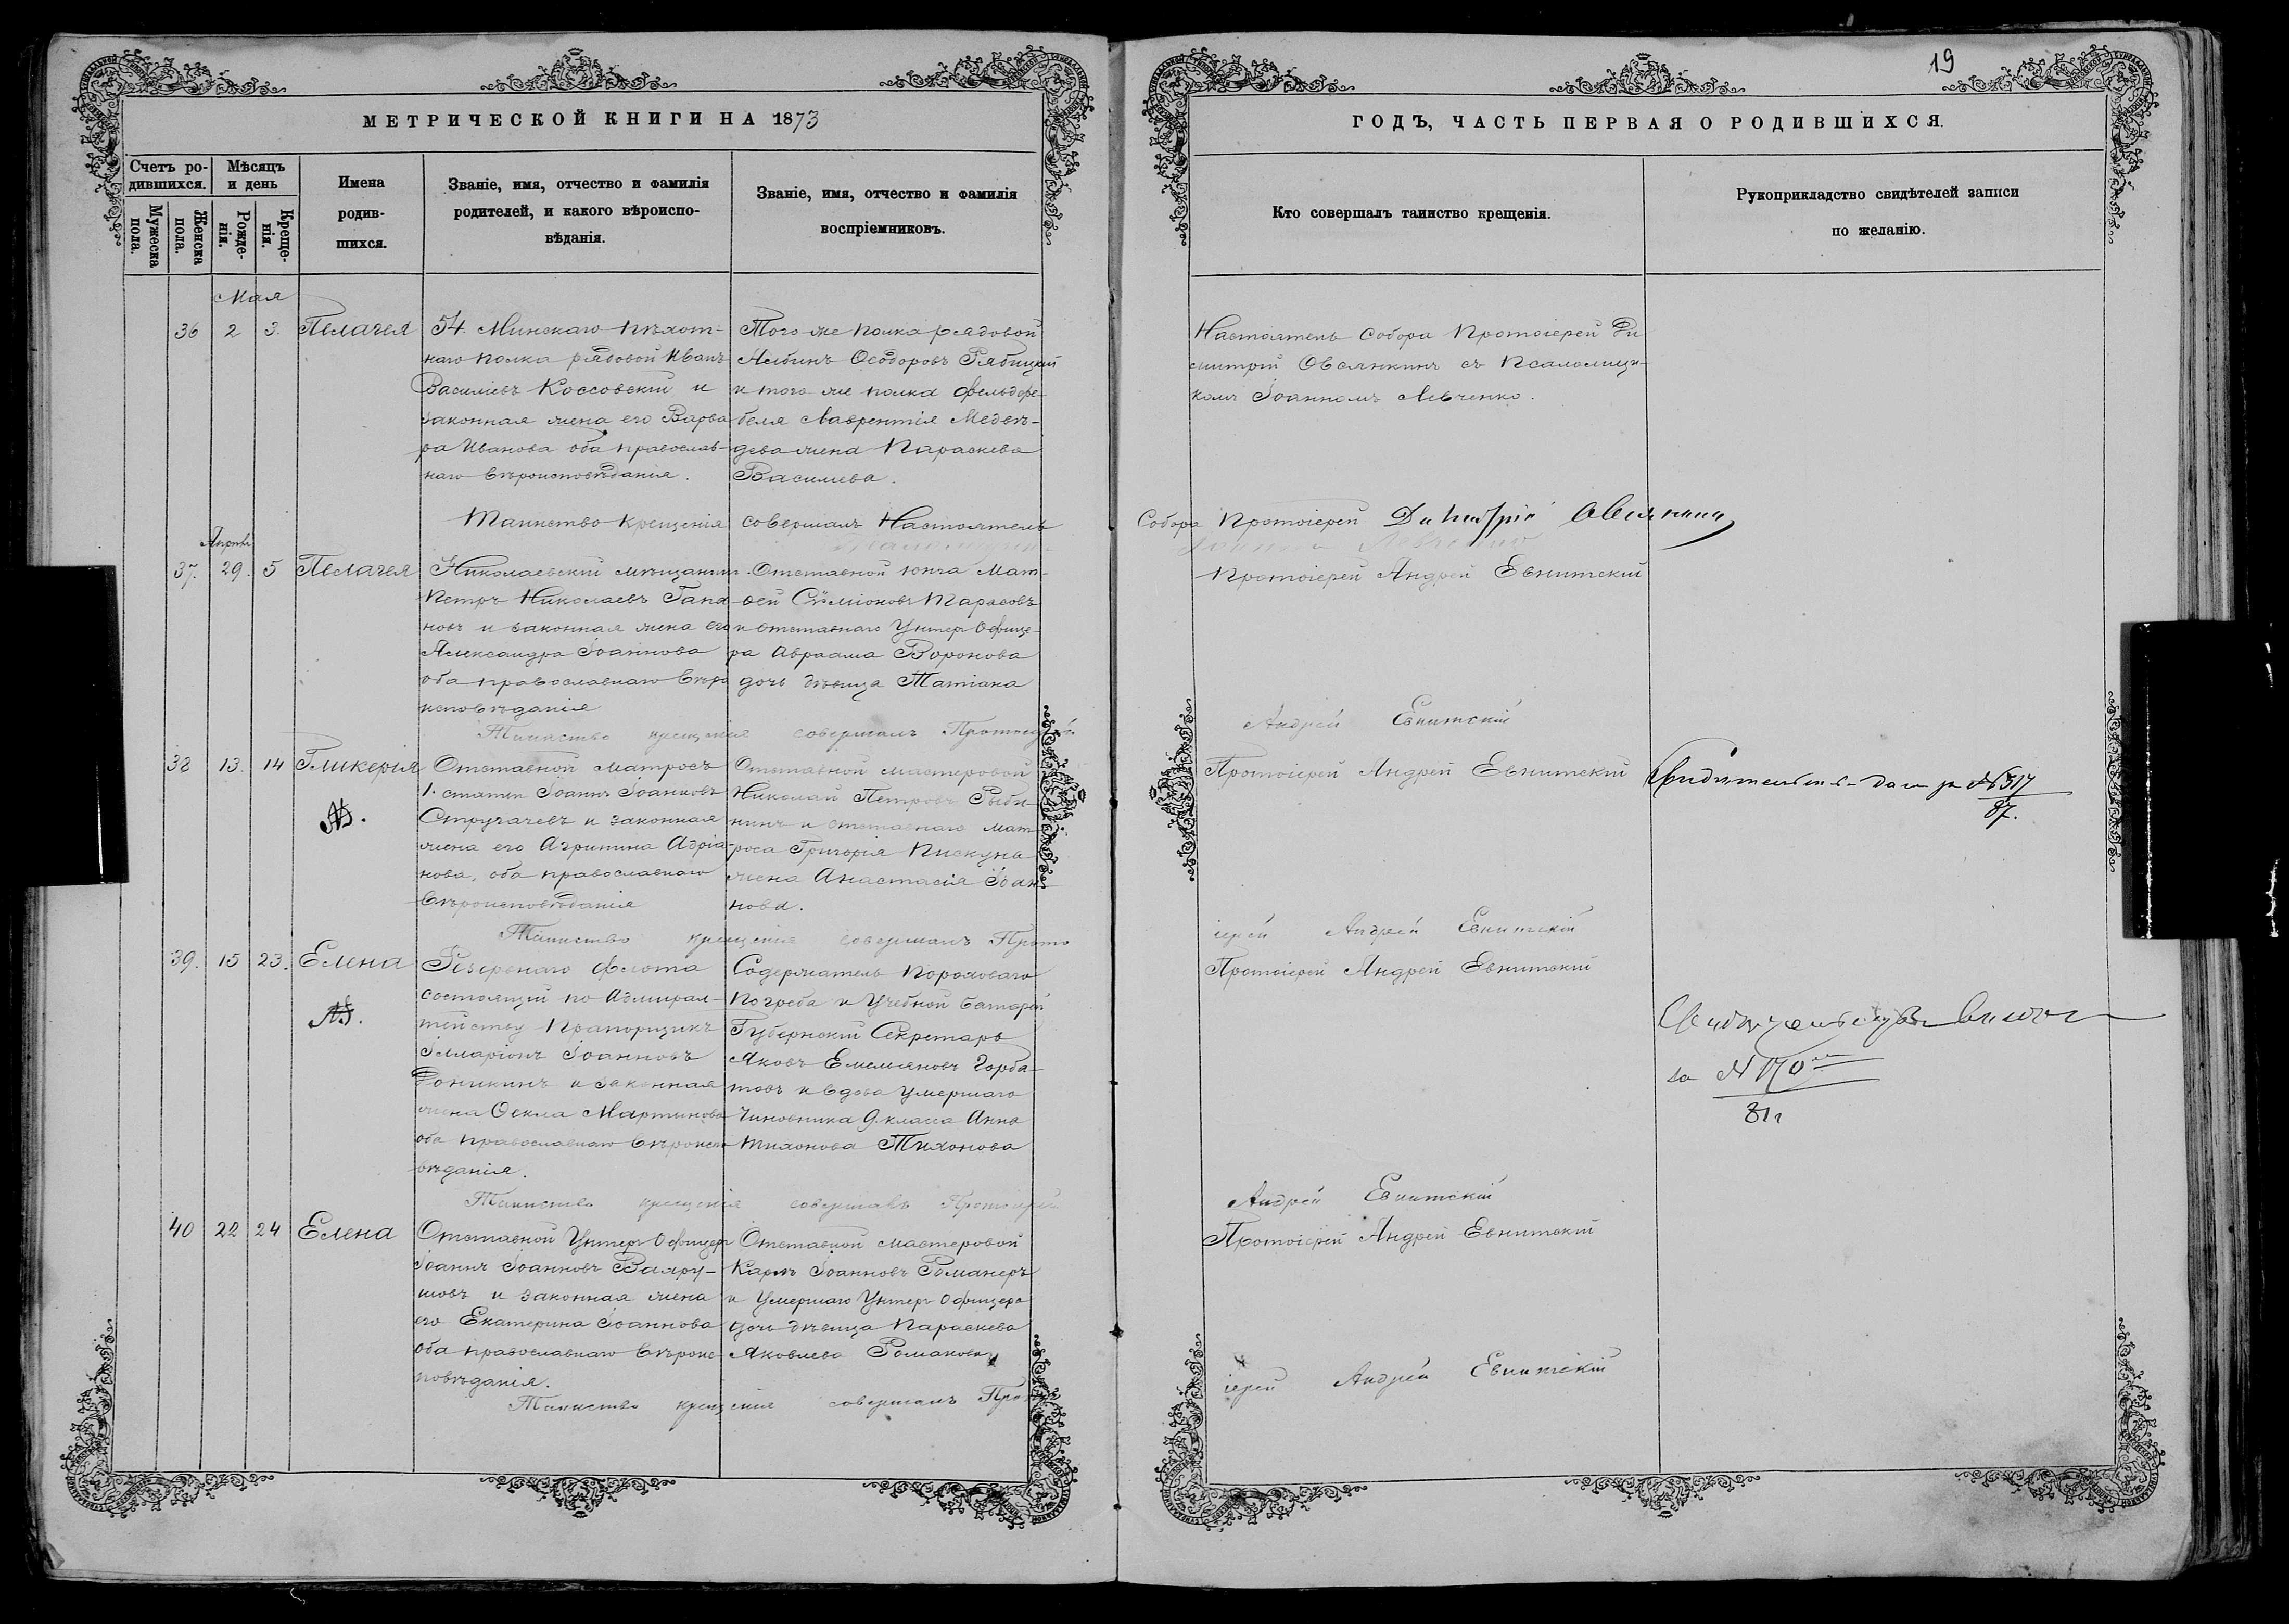 МЕТРИЧЕСКОЙ КНИГИ НА 1873
Счетъ ро-
дившихся.
Мѣсяцъ
и день
Мужеска
пола.
Женска
пола.
Рожде-
нія.
Креще-
нія.
Имена
родив-
шихся.
Званіе, имя, отчество и фамилія
родителей, и какого вѣроиспо-
вѣданія.
Званіе, имя, отчество и фамилія
воспріемниковъ.
Мая
36 2 3 Пелагея
54. Минскаго Пѣхот-
наго полка рядовой Иванъ
Василіевъ Коссовскій и
законная жена его Варва
ра Иванова оба православ-
наго вѣроисповѣданія.
Того же полка рядовой
Ѳеодоровъ
и того же полка фельдфе-
беля Лаврентія Медвѣ-
дева жена Параскева
Васильева.
Таинство крещенія совершалъ Настоятель
Апрѣля
37. 29. 5 Пелагея
Николаевскій мѣщанинъ
Петръ Николаевъ Гапа
новъ и законная жена его
Александра Іоаннова
оба православнаго вѣро
исповѣданія
Отставной юнга Мат-
ѳей Симіоновъ Тарасовъ
и отставнаго Унтеръ Офице-
ра Авраама Воронова
дочь дѣвица Татіана
Таинство крещенія совершалъ Протоіерей
38 13. 14 Гликерія
Отставной матросъ
1. статьи Іоаннъ Іоанновъ
Стручачевъ и законная
жена его Агрипина Адріа-
нова, оба православнаго
вѣроисповѣданія
Отставной мастеровой
Николай Петровъ Рыби-
нинъ и отставнаго мат-
роса Григорія Пискуна
жена Анастасія Іоан-
нова.
Таинство крещенія совершалъ Прото
39. 15 23. Елена
Резервнаго флота
состоящій по Адмирал-
тейству Прапорщикъ
Илларіонъ Іоанновъ
и законная
жена Ѳекла Мартинова
оба православнаго вѣроиспо
вѣданія.
Содержатель Пороховаго
Погреба и Учебной батареи
Губернскій Секретарь
Яковъ Емельяновъ Горба-
товъ и вдова умершаго
Чиновника 9. класса Анна
Тихонова Тихонова
Таинство крещенія совершалъ Протоіерей
40 22 24 Елена
Отставной Унтеръ Офицеръ
Іоаннъ Іоанновъ Вахру-
шовъ и законная жена
его Екатерина Іоаннова
оба православнаго вѣроис-
повѣданія.
Отставной мастеровой
Карпъ Іоанновъ
и Умершаго Унтеръ Офицера
дочь дѣвица Параскева
Яковлева
Таинство крещенія совершалъ Прото
19
ГОДЪ, ЧАСТЬ ПЕРВАЯ О РОДИВШИХСЯ.
Кто совершалъ таинство крещенія.
Рукоприкладство свидѣтелей записи
по желанію.
Настоятель Собора Протоіерей Ди
митрій Овсянкинъ съ Псаломщи-
комъ Іоанномъ Левченко.
Собора Протоіерей Димитрій Овсянкинъ
Левченко
Протоіерей Андрей Евнитскій
Андрей Евнитскій
Протоіерей Андрей Евнитскій
Свидѣтельств- дано за № 517
87.
іерей Андрей Евнитскій
Протоіерей Андрей Евнитскій
Свидѣтельство
за № 170
81 г
Андрей Евнитскій
Протоіерей Андрей Евнитскій
іерей Андрей Евнитскій